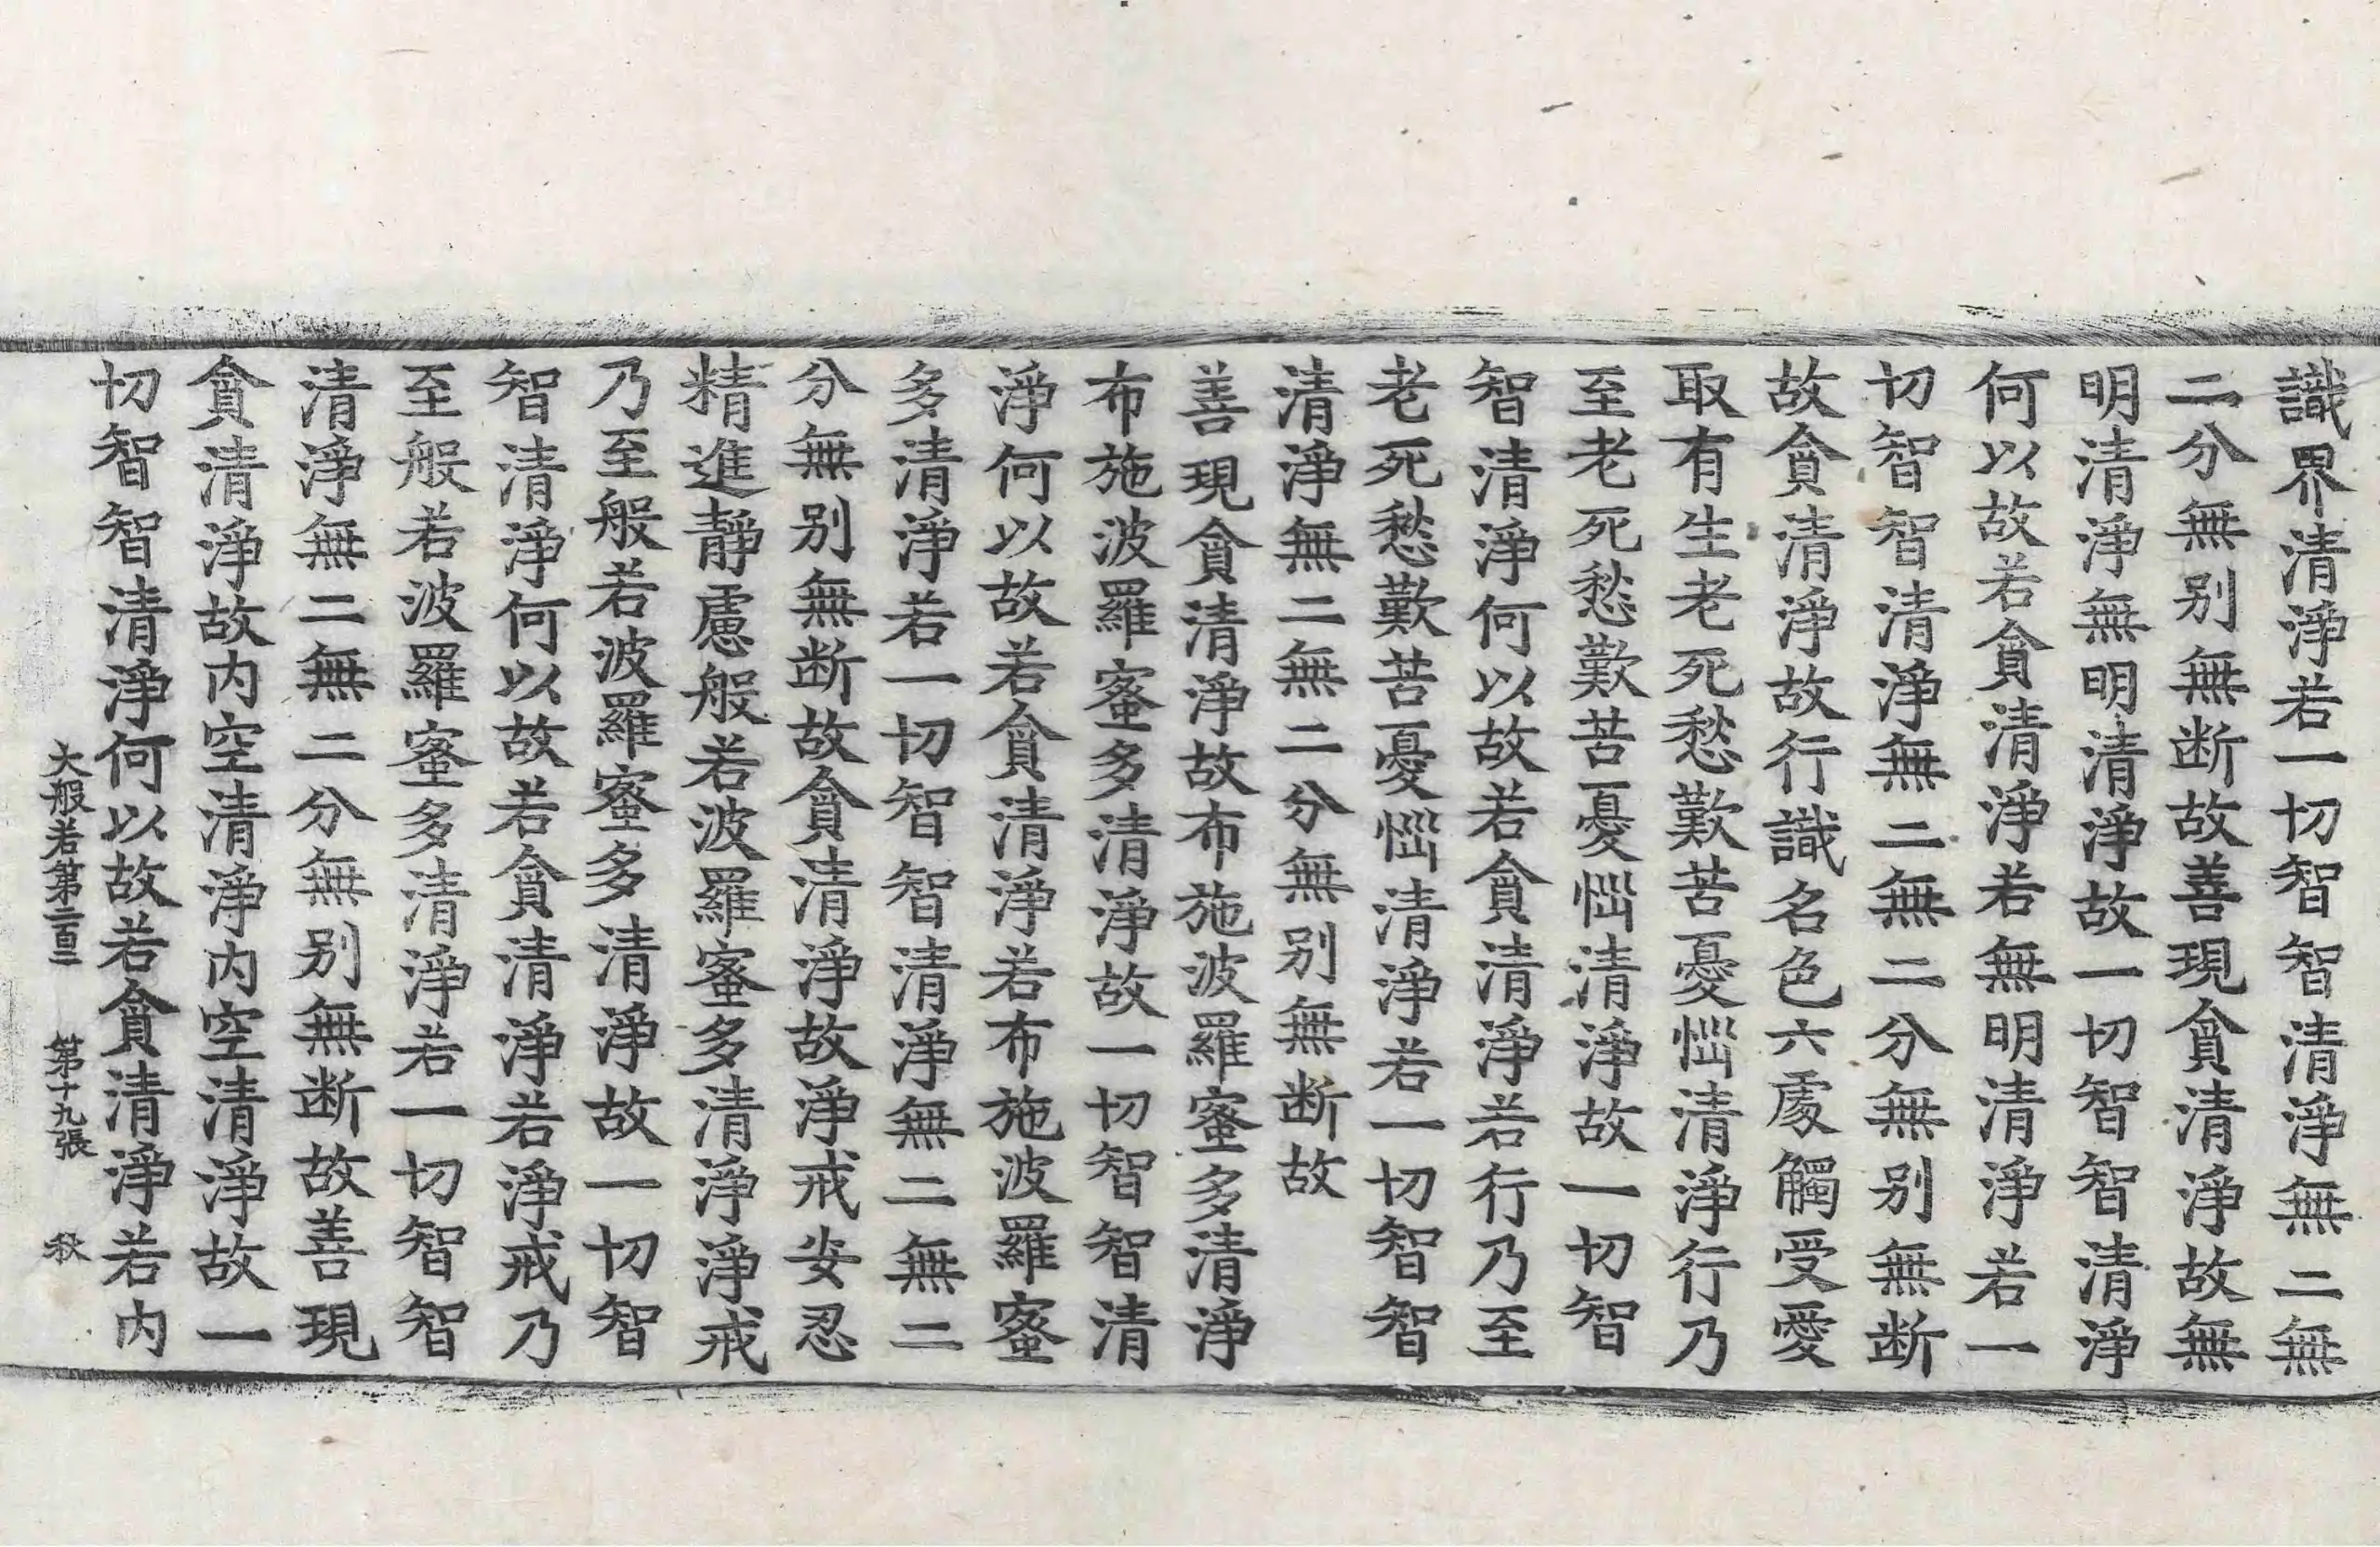 識界清淨若一切智智清淨無二無
二分無别無断故善現貪清淨故無
明清淨無明清淨故一切智智清淨
何以故若貪清淨若無明清淨若一
切智智清淨無二無二分無别無断
故貪清淨故行識名色六處觸受愛
取有生老死愁歎苦憂惱清淨行乃
至老死愁歎苦憂惱清淨故一切智
智清淨何以故若貪清淨若行乃至
老死愁歎苦憂惱清淨若一切智智
清淨無二無二分無别無断故
善現貪清淨故布施波羅蜜多清淨
布施波羅蜜多清淨故一切智智清
淨何以故若貪清淨若布施波羅蜜
多清淨若一切智智清淨無二無二
分無别無断故貪清淨故淨戒安忍
精進靜慮般若波羅蜜多清淨淨戒
乃至般若波羅蜜多清淨故一切智
智清淨何以故若貪清淨若淨戒乃
至般若波羅蜜多清淨若一切智智
清淨無二無二分無别無断故善現
貪清淨故内空清淨内空清淨故一
切智智清淨何以故若貪清淨若内
大般若第二百二 第十九張